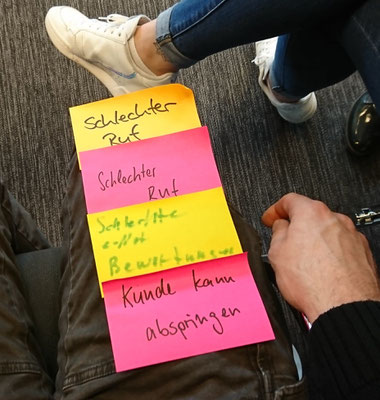 Schlechter
Ruf
Schlechter
Ruf
Schlechte
Bewertungen
Kunde kann
abspringen